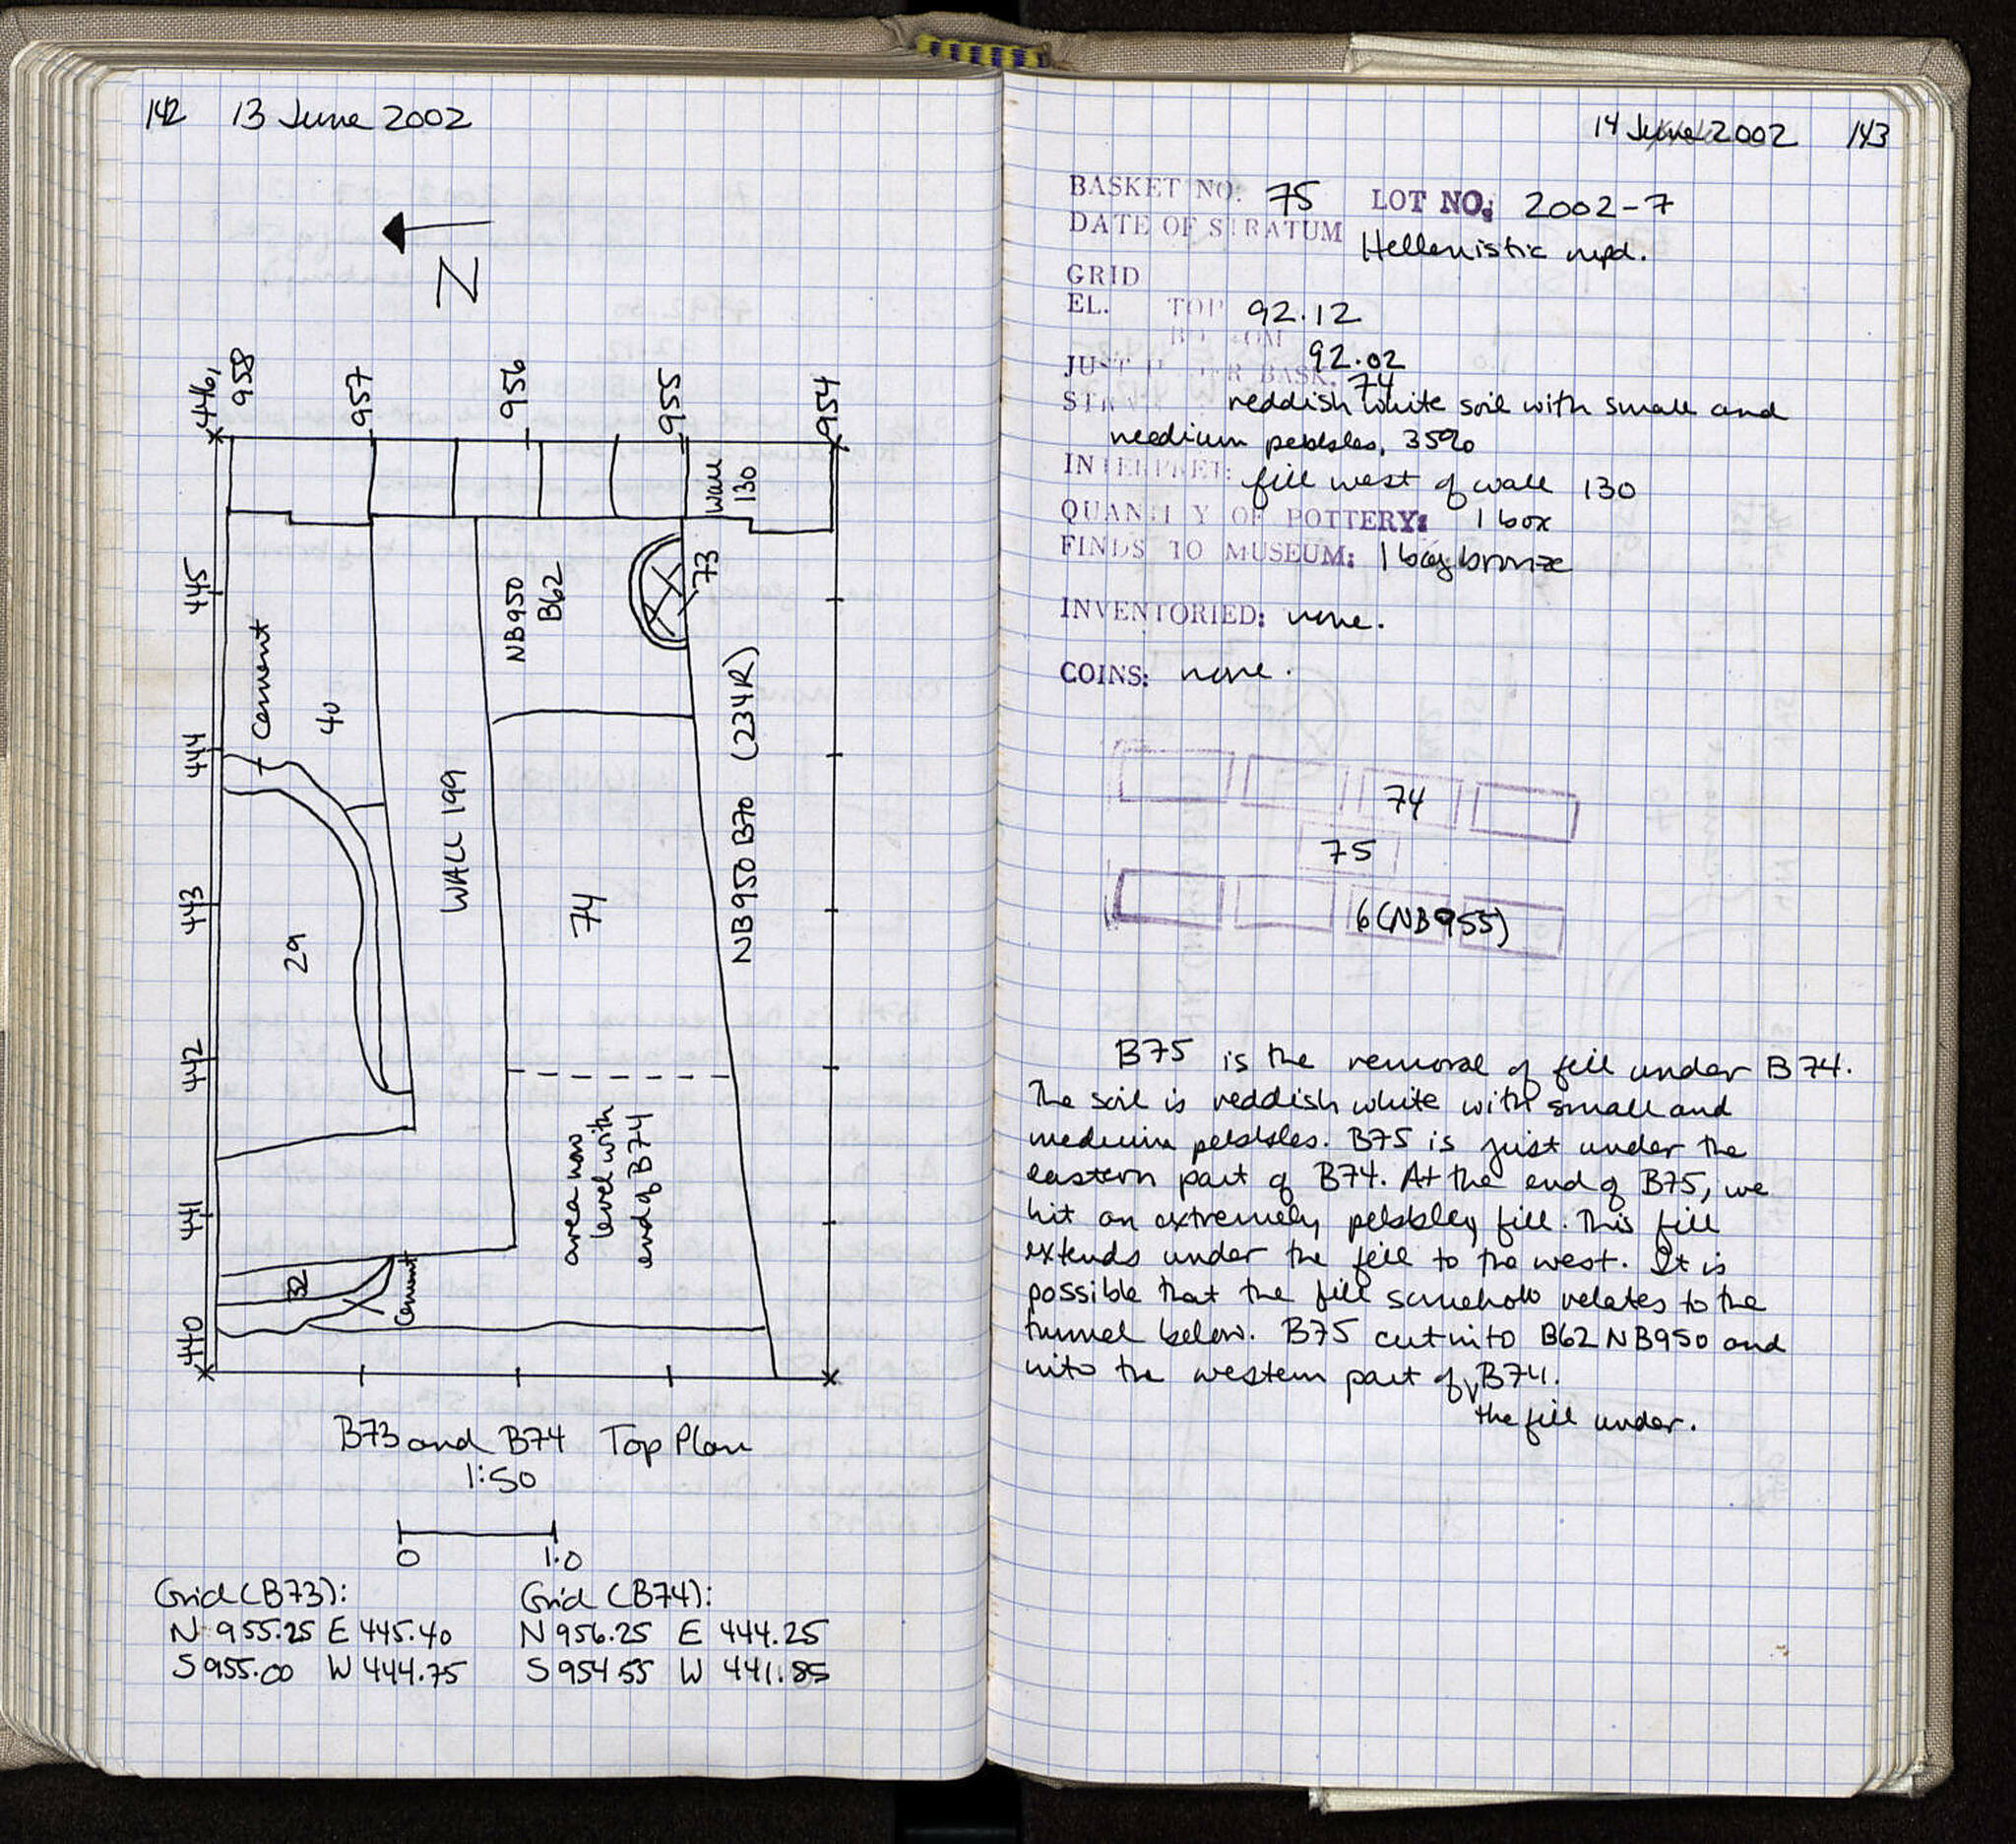 142 13 June 2002
N
446,
958
957
956
955
954
445
444
443
442
441
440
Wall
130
NB950
B62
73
Cement
40
WALL 199
NB950 B70 (234R)
74
29
area now
level with
end of B74
32
Cement
B73 and B74 Top Plan
1:50
0 1.0
Grid (B73): Grid (B74):
N 955.25 E 445.40 N 956.25 E 444.25
S 955.00 W 444.75 S 954 55 W 441.85
14 June 2002 143
BASKET NO: 75 LOT NO: 2002-7
DATE OF STRATUM Hellenistic mpd.
GRID
EL. TOP 92.12
BOTTOM 92.02
JUST UNDER BASK. 74
reddish white soil with small and
medium pebbles, 35%
INTERPRET: fill west of wall 130
QUANTITY OF POTTERY: 1 box
FINDS TO MUSEUM: 1 bag bronze
INVENTORIED: none.
COINS: none.
74
75
6 (NB955)
B75 is the removal of fill under B74.
The soil is reddish white with small and
medium pebbles. B75 is just under the
eastern part of B74. At the end of B75, we
hit an extremely pebbley fill. This fill
extends under the fill to the west. It is
possible that the fill somehow relates to the
tunnel below. B75 cut into B62 NB950 and
into the western part of B74.
the fill under.